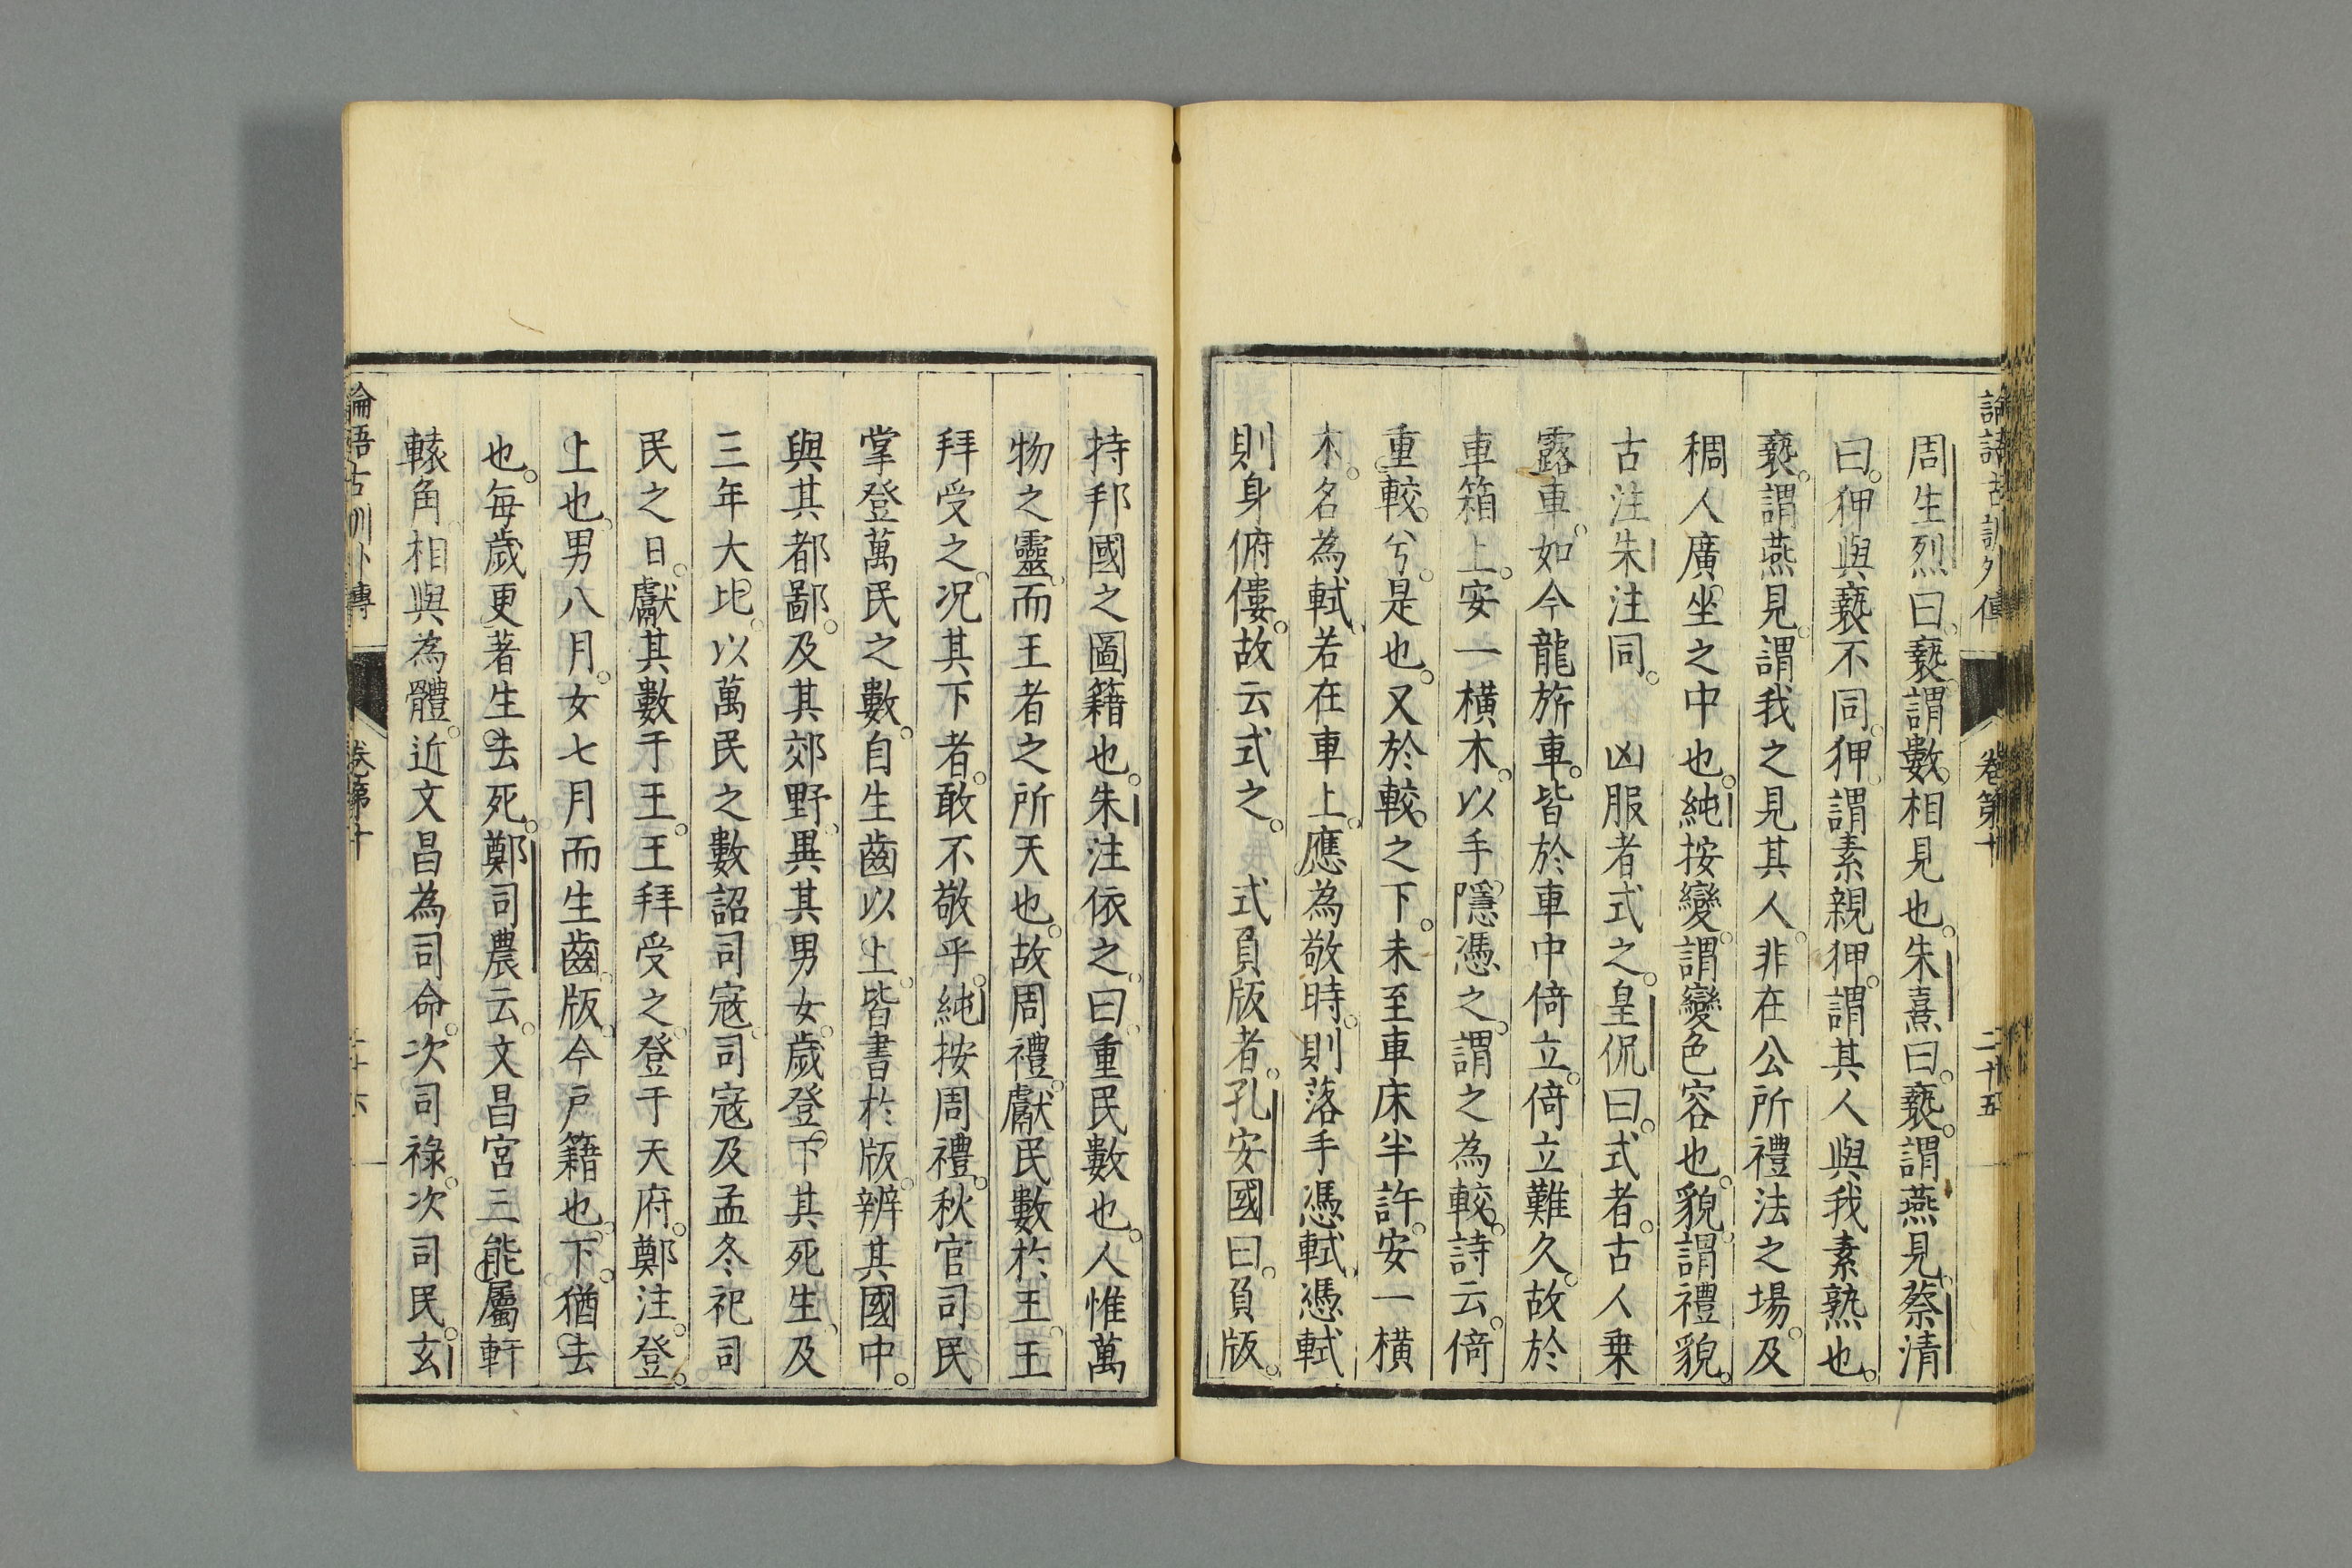 論語古訓外傳 卷第十 二十五
周生烈曰。褻謂數相見也。朱熹曰。褻。謂燕見。蔡清
曰。狎與褻不同。狎。謂素親狎。謂其人與我素熟也。
褻。謂燕見。謂我之見其人。非在公所禮法之場。及
稠人廣坐之中也。純按變。謂變色容也。貌。謂禮貌。
古注朱注同。 凶服者式之。皇侃曰。式者。古人乗
露車。如今龍旂車。皆於車中倚立。倚立難久。故於
車箱上。安一橫木。以手隱憑之。謂之為較。詩云。倚
重較兮。是也。又於較之下。未至車床半許。安一橫
木。名為軾。若在車上。應為敬時。則落手憑軾。憑軾
則身俯僂。故云式之。 式負版者。孔安國曰。負版。
持邦國之圖籍也。朱注依之。曰。重民數也。人惟萬
物之靈。而王者之所天也。故周禮。獻民數於王。王
拜受之。况其下者。敢不敬乎。純按周禮。秋官司民
掌登萬民之數。自生齒以上。皆書於版。辨其國中。
與其都鄙。及其郊野。異其男女。歲登。下其死生。及
三年大比。以萬民之數詔司寇。司寇及孟冬祀司
民之日。獻其數于王。王拜受之。登于天府。鄭注。登。
上也。男八月。女七月而生齒。版。今戶籍也。下。猶去
也。每歲更著生去死。鄭司農云。文昌宮三能屬軒
轅角。相與為體。近文昌為司命。次司祿。次司民。玄
論語古訓外傳 卷第十 二十六